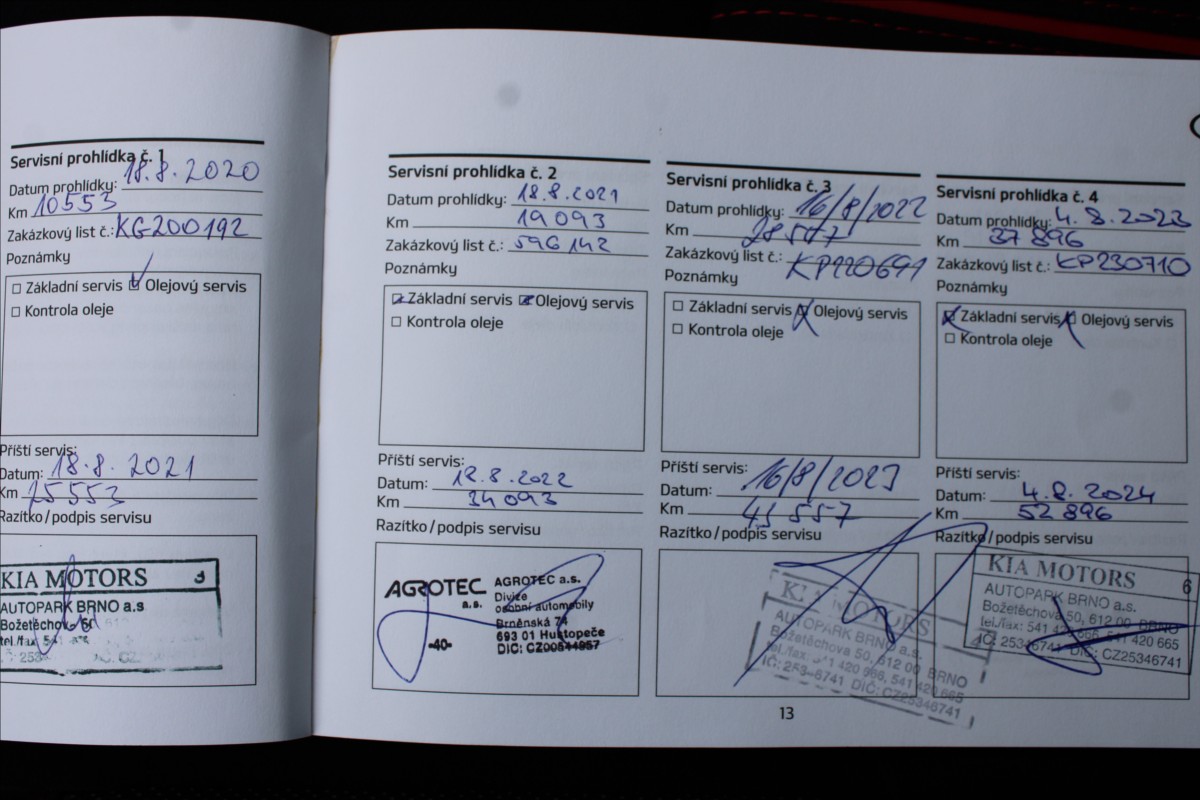 Servisní prohlídka č. 1
Datum prohlídky: 18.8.2020
Km 10553
Zakázkový list č.: KG200192
Poznámky
Základní servis Olejový servis
Kontrola oleje
Příští servis:
Datum: 18.8.2021
Km 25553
Razítko/podpis servisu
KIA MOTORS
AUTOPARK BRNO a.s
Božetěchova 50
Servisní prohlídka č. 2
Datum prohlídky: 18.8.2021
Km 19 093
Zakázkový list č.: 596 142
Poznámky
Základní servis Olejový servis
Kontrola oleje
Příští servis:
Datum: 18.8.2022
Km 34 093
Razítko/podpis servisu
AGROTEC a.s.
-40-
AGROTEC a.s.
Divize
osobní automobily
Brněnská 74
693 01 Hustopeče
DIČ: CZ00544957
Servisní prohlídka č. 3
Datum prohlídky: 16/8/2022
Km 28 557
Zakázkový list č.: KP220691
Poznámky
Základní servis Olejový servis
Kontrola oleje
Příští servis:
Datum: 16/8/2023
Km
Razítko/podpis servisu
KIA MOTORS
AUTOPARK BRNO a.s.
Božetěchova 50, 612 00 BRNO
tel./fax: 541 420 666, 541 420 665
DIČ: CZ25346741
Servisní prohlídka č. 4
Datum prohlídky: 4.8.2023
Km 37 896
Zakázkový list č.: KP230710
Poznámky
Základní servis Olejový servis
Kontrola oleje
Příští servis:
Datum: 4.8.2024
Km 52 896
Razítko/podpis servisu
KIA MOTORS 6
AUTOPARK BRNO a.s.
Božetěchova 50, 612 00 BRNO
tel./fax: 541 420 666, 541 420 665
IČ: 25346741 DIČ: CZ25346741
13